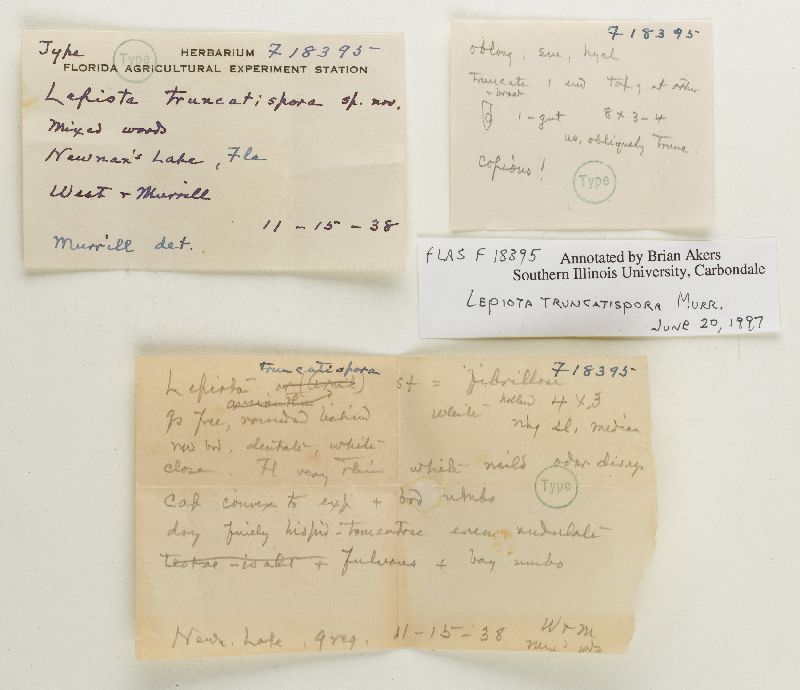 Type HERBARIUM F 18395
Type
FLORIDA AGRICULTURAL EXPERIMENT STATION
Lepiota truncatispora sp. nov.
Mixed woods
Newnan's Lake, Fla
West + Murrill
11 - 15 - 38
Murrill det.
F 18395
oblong, sm, hyal
truncate 1 end tap g at other
1 - gut 8 x 3-4
obliquely trunc.
Copious!
Type
FLAS F 18395 Annotated by Brian Akers
Southern Illinois University, Carbondale
LEPIOTA TRUNCATISPORA MURR.
JUNE 20, 1997
truncatispora F 18395
Lepiota st = fibrillose
white hollow 4 x 3
gs free, rounded behind
ring sl, median
dentate, white
close. Fl very thin white mild odor disag
Type
Cap convex to exp + brd umbo
dry finely hispid-tomentose even undulate
+ fulvous + bay umbo
Newn. Lake, Greg. 11-15-38 W + M
Mix wds